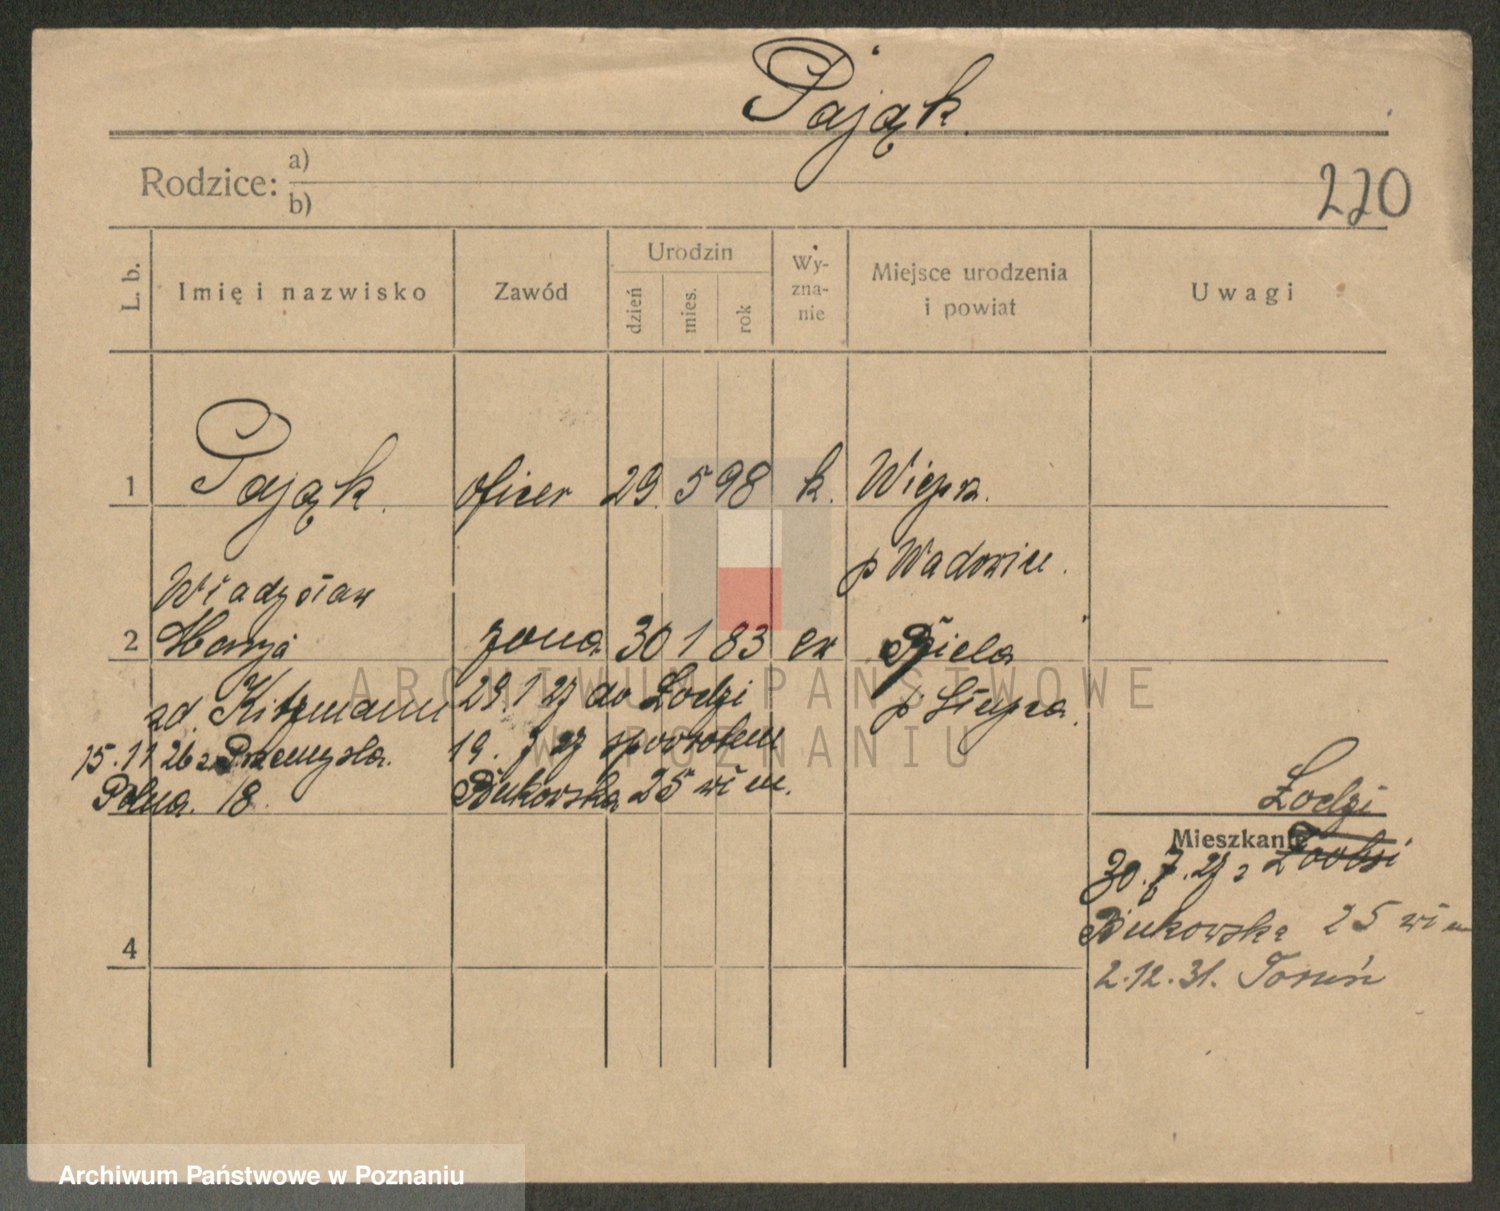 Pająk.
Rodzice: a)
b)
220
L. b.
Imię i nazwisko
Zawód
Urodzin
dzień
mies.
rok
Wy-
zna-
nie
Miejsce urodzenia
i powiat
Uwagi
1 Pająk. oficer 29. 5 98 k. Wieprz.
Władysław p Wadowice.
2 Marja żona 30 1 83 ew
zd. Kitzmann 29.1 27 do Łodzi p Słupca.
15.11 26 z Przemyśla. 19. 7 27 spowrotem
Polna. 18. Bukowska 25 wł m.
Łodzi
Mieszkanie
30. 7. 27 z
Bukowska 25 wł m
4
2.12.31. Toruń
ARCHIWUM PAŃSTWOWE
W POZNANIU
Archiwum Państwowe w Poznaniu